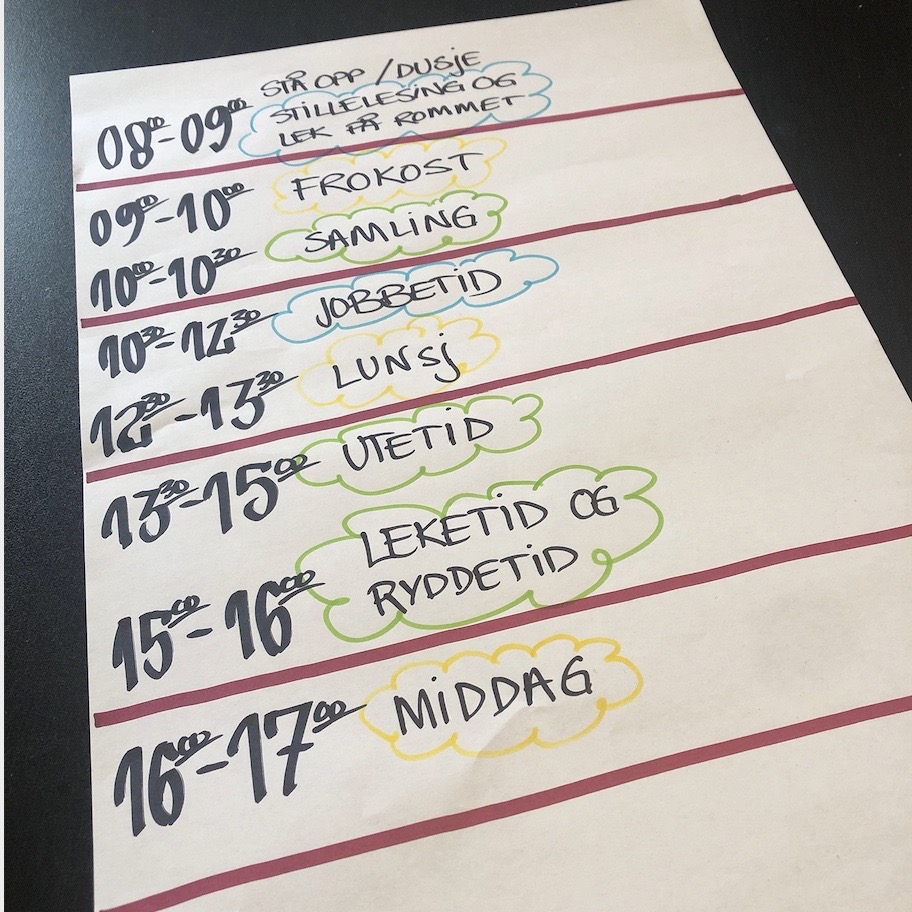 08⁰⁰-09⁰⁰ STÅ OPP / DUSJE
STILLELESING OG
LEK PÅ ROMMET
09⁰⁰-10⁰⁰ FROKOST
10⁰⁰-10³⁰ SAMLING
10³⁰-12³⁰ JOBBETID
12³⁰-13³⁰ LUNSJ
13³⁰-15⁰⁰ UTETID
LEKETID OG
15⁰⁰-16⁰⁰ RYDDETID
16⁰⁰-17⁰⁰ MIDDAG